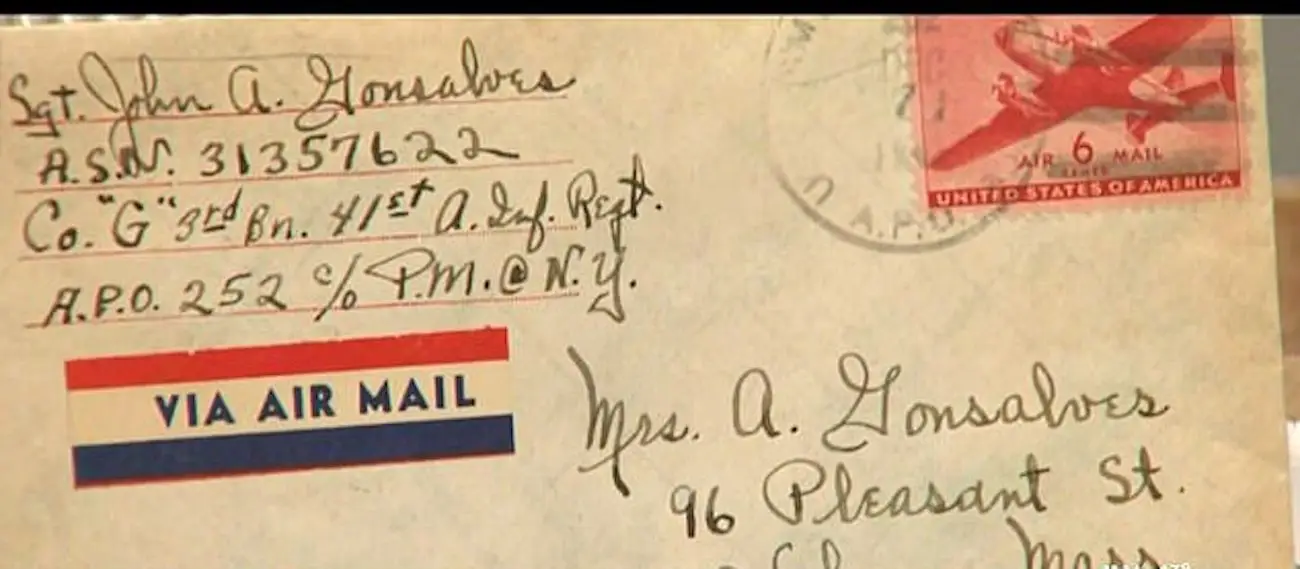 Sgt. John A. Gonsalves
A.S.N. 31357622
Co. "G" 3rd Bn. 41st A. Inf. Regt.
A.P.O. 252 c/o P.M. @ N.Y.
VIA AIR MAIL
AIR 6 MAIL
CENTS
UNITED STATES OF AMERICA
A.P.O.
Mrs. A. Gonsalves
96 Pleasant St.
Mass.